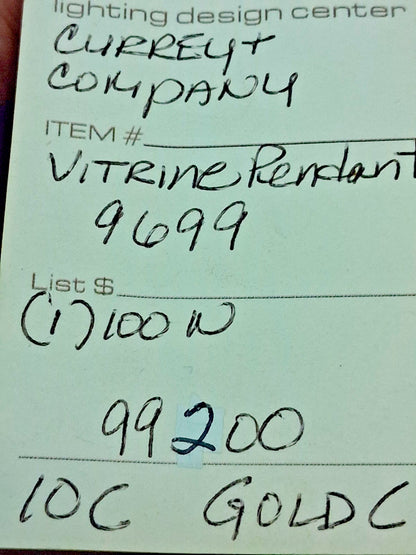 lighting design center
CURREY+
COMPANY
ITEM #
VITRINE Pendant
9699
List $
(1) 100 W
99200
10C GOLD C